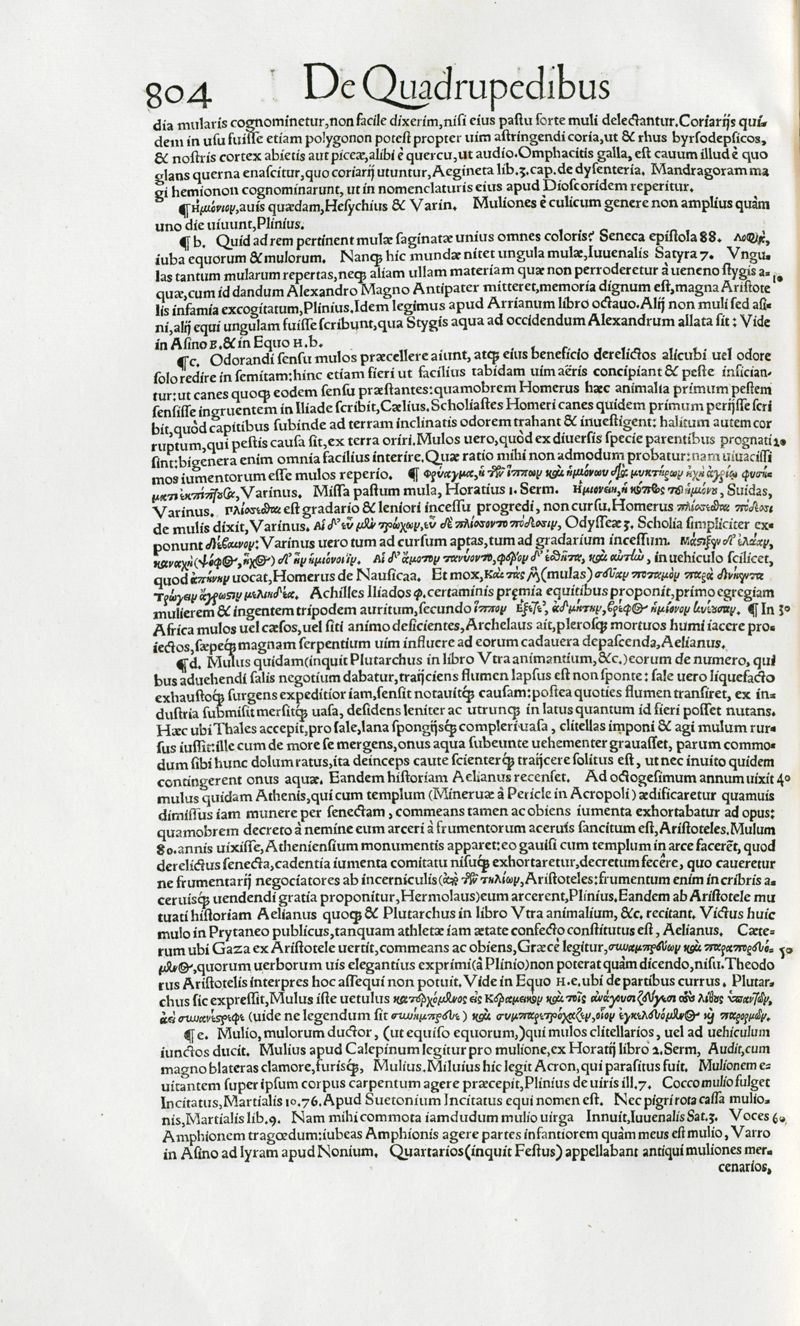 804 De Quadrupedibus
dia mularis cognominetur, non facile dixerim, nisi eius pastu forte muli delectantur. Coriarijs qui-
dem in usu fuisse etiam polygonon potest propter uim astringendi coria, ut & rhus byrsodepsicos,
& nostris cortex abietis aut piceæ, alibi è quercu, ut audio. Omphacitis galla, est cauum illud è quo
glans querna enascitur, quo coriarij utuntur, Aegineta lib. 3. cap. de dysenteria. Mandragoram ma
gi hemionon cognominarunt, ut in nomenclaturis eius apud Dioscoridem reperitur.
¶ Ημιόνιον, auis quædam, Hesychius & Varin. Muliones è culicum genere non amplius quàm
uno die uiuunt, Plinius.
¶ b. Quid ad rem pertinent mulæ saginatæ unius omnes coloris? Seneca epistola 88.
iuba equorum & mulorum. Nanq; hic mundæ nitet ungula mulæ, Iuuenalis Satyra 7. Vngu-
las tantum mularum repertas, neq; aliam ullam materiam quæ non perroderetur à ueneno stygis a- 10
quæ, cum id dandum Alexandro Magno Antipater mitteret, memoria dignum est, magna Aristote
lis infamia excogitatum, Plinius. Idem legimus apud Arrianum libro octauo. Alij non muli sed asi-
ni, alij equi ungulam fuisse scribunt, qua Stygis aqua ad occidendum Alexandrum allata sit: Vide
in Asino B. & in Equo H. b.
¶ c. Odorandi sensu mulos præcellere aiunt, atq; eius beneficio derelictos alicubi uel odore
solo redire in semitam: hinc etiam fieri ut facilius tabidam uim aëris concipiant & peste inscian-
tur: ut canes quoq; eodem sensu præstantes: quamobrem Homerus hæc animalia primum pestem
sensisse ingruentem in Iliade scribit, Cælius. Scholiastes Homeri canes quidem primum perijsse scri
bit, quòd capitibus subinde ad terram inclinatis odorem trahant & inuestigent: halitum autem cor
ruptum, qui pestis causa sit, ex terra oriri. Mulos uero, quòd ex diuersis specie parentibus prognati 20
sint: bigenera enim omnia facilius interire. Quæ ratio mihi non admodum probatur: nam uiuacissi
mos iumentorum esse mulos reperio. ¶ Φρύαγμα, ἡ τῶν ἵππων καὶ ἡμιόνων διὰ μυκτήρων ἠχὴ ἀγρίῳ φυσή-
ματι ἐκπίπτουσα, Varinus. Missa pastum mula, Horatius 1. Serm. Suidas,
Varinus. est gradario & leniori incessu progredi, non cursu. Homerus
de mulis dixit, Varinus. Αἱ δ' εὖ μὲν τρώχων, εὖ δὲ πλίσσοντο πόδεσσιν, Odysseæ 3. Scholia simpliciter ex-
ponunt διέβαινον: Varinus uero tum ad cursum aptas, tum ad gradarium incessum. Μάστιξεν δ' ἐλάαν,
καναχὴ (ψόφος, ἦχος) δ' ἦν ἡμιόνοιϊν. Αἱ δ' ἄμοτον τανύοντο, φέρον δ' ἐσθῆτα, καὶ αὐτὼ, in uehiculo scilicet,
quod ἀπήνην uocat, Homerus de Nausicaa. Et mox, Καὶ τὰς μὲν (mulas) σεῦαν ποταμὸν παρὰ δινήεντα
Τρώγειν ἄγρωστιν μελιηδέα. Achilles Iliados φ. certaminis præmia equitibus proponit, primo egregiam
mulierem & ingentem tripodem auritum, secundo ἵππον Ἑξετέ', ἀδμήτην, βρέφος ἡμίονον κυέουσαν. ¶ In 30
Africa mulos uel cæsos, uel siti animo deficientes, Archelaus ait, plerosq; mortuos humi iacere pro-
iectos, sæpeq; magnam serpentium uim influere ad eorum cadauera depascenda, Aelianus.
¶ d. Mulus quidam (inquit Plutarchus in libro Vtra animantium, &c.) eorum de numero, qui
bus aduehendi salis negotium dabatur, traijciens flumen lapsus est non sponte: sale uero liquefacto
exhaustoq; surgens expeditior iam, sensit notauitq; causam: postea quoties flumen transiret, ex in-
dustria submisit mersitq; uasa, desidens leniter ac utrunq; in latus quantum id fieri posset nutans.
Hæc ubi Thales accepit, pro sale, lana spongijsq; compleri uasa, clitellas imponi & agi mulum rur-
sus iussit: ille cum de more se mergens, onus aqua subeunte uehementer grauasset, parum commo-
dum sibi hunc dolum ratus, ita deinceps caute scienterq; traijcere solitus est, ut nec inuito quidem
contingerent onus aquæ. Eandem historiam Aelianus recenset. Ad octogesimum annum uixit 40
mulus quidam Athenis, qui cum templum (Mineruæ à Pericle in Acropoli) ædificaretur quamuis
dimissus iam munere per senectam, commeans tamen ac obiens iumenta exhortabatur ad opus:
quamobrem decreto à nemine eum arceri à frumentorum aceruis sancitum est, Aristoteles. Mulum
80. annis uixisse, Atheniensium monumentis apparet: eo gauisi cum templum in arce facerẽt, quod
derelictus senecta, cadentia iumenta comitatu nisuq; exhortaretur, decretum fecêre, quo caueretur
ne frumentarij negociatores ab incerniculis (ἀπὸ τῶν τηλίων, Aristoteles: frumentum enim in cribris a-
ceruisq; uendendi gratia proponitur, Hermolaus) eum arcerent, Plinius. Eandem ab Aristotele mu
tuati historiam Aelianus quoq; & Plutarchus in libro Vtra animalium, &c. recitant. Victus huic
mulo in Prytaneo publicus, tanquam athletæ iam ætate confecto constitutus est, Aelianus. Cæte-
rum ubi Gaza ex Aristotele uertit, commeans ac obiens, Græcè legitur, συναμπρεύων καὶ παραπορευό- 50
μενος, quorum uerborum uis elegantius exprimi (à Plinio) non poterat quàm dicendo, nisu. Theodo
rus Aristotelis interpres hoc assequi non potuit. Vide in Equo H. c. ubi de partibus currus. Plutar-
chus sic expressit, Mulus iste uetulus
(uide ne legendum sit
¶ e. Mulio, mulorum ductor, (ut equiso equorum,) qui mulos clitellarios, uel ad uehiculum
iunctos ducit. Mulius apud Calepinum legitur pro mulione, ex Horatij libro 2. Serm, Audit, cum
magno blateras clamore, furisq;, Mulius. Miluius hic legit Acron, qui parasitus fuit. Mulionem e-
uitantem super ipsum corpus carpentum agere præcepit, Plinius de uiris ill. 7. Cocco mulio fulget
Incitatus, Martialis 10. 76. Apud Suetonium Incitatus equi nomen est. Nec pigri rota cassa mulio-
nis, Martialis lib. 9. Nam mihi commota iamdudum mulio uirga Innuit, Iuuenalis Sat. 3. Voces 60
Amphionem tragœdum: iubeas Amphionis agere partes infantiorem quàm meus est mulio, Varro
in Asino ad lyram apud Nonium. Quartarios (inquit Festus) appellabant antiqui muliones mer-
cenarios,